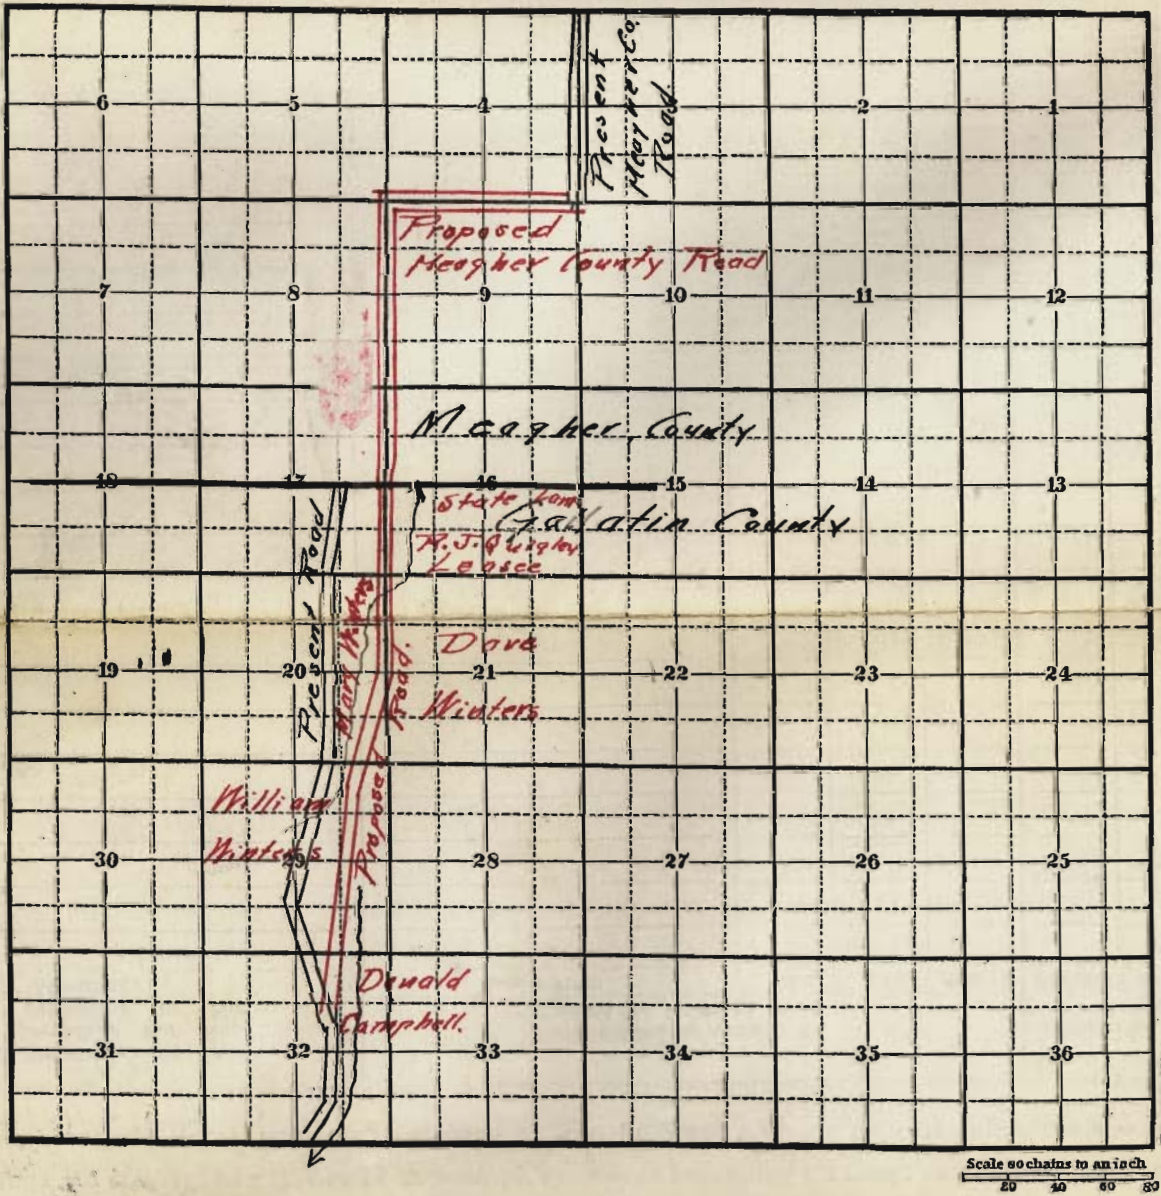 Present
Meagher Co.
Road
6 5 4 3 2 1
Proposed
Meagher County Road
7 8 9 10 11 12
Meagher County
18 17 16 15 14 13
State Lan
Gallatin County
R. J. Quigley
Leasee
Present Road
Mary Winters
Dave
19 20 21 22 23 24
Winters
Proposed Road.
William
Winters
30 29 28 27 26 25
Donald
Campbell.
31 32 33 34 35 36
Scale 80 chains to an inch
20 40 60 80